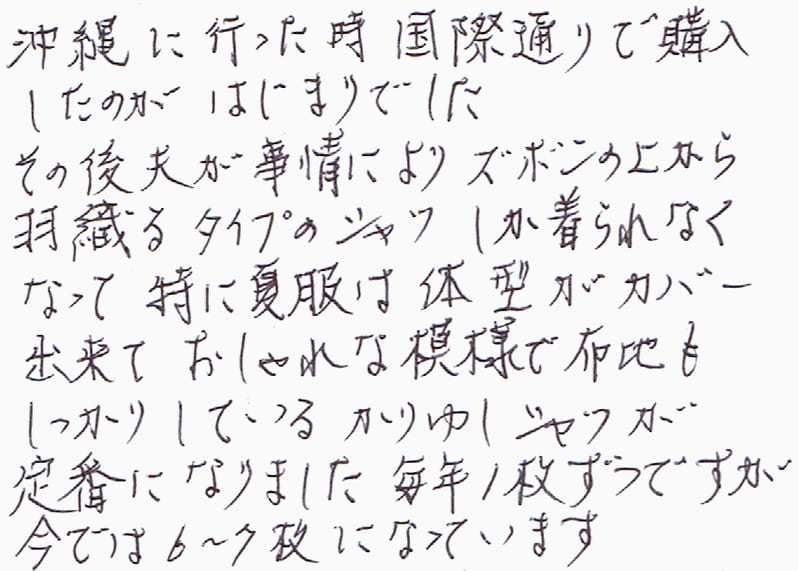 沖縄に行った時国際通りで購入
したのがはじまりでした
その後夫が事情によりズボンの上から
羽織るタイプのシャツしか着られなく
なって特に夏服は体型がカバー
出来ておしゃれな模様で布地も
しっかりしているかりゆしシャツが
定番になりました毎年1枚ずつですが
今では6〜7枚になっています